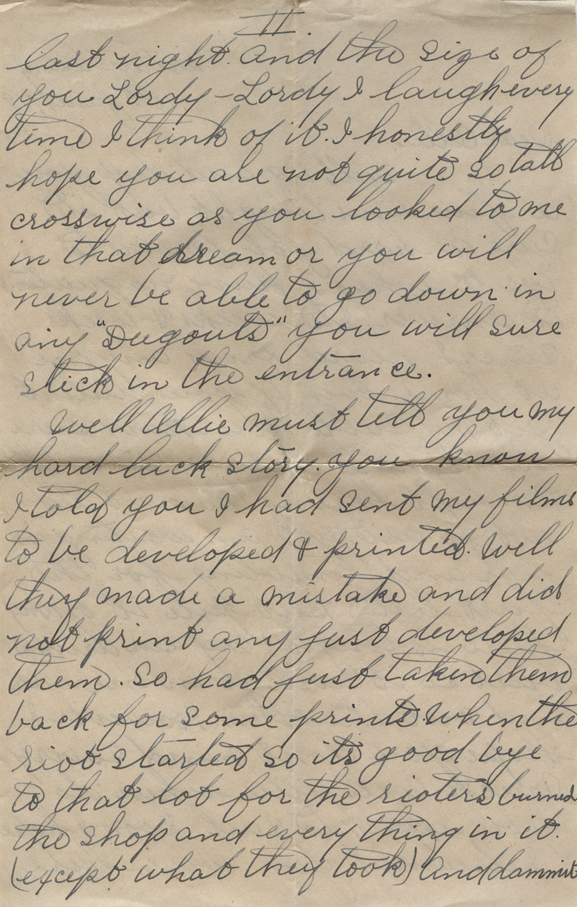 II.
last night. And the size of
you Lordy-Lordy I laugh every
time I think of it. I honestly
hope you are not quite so tall
crosswise as you looked to me
in that dream or you will
never be able to go down in
any "Dugouts" you will sure
stick in the entrance.
Well Allie must tell you my
hard luck story. you know
I told you I had sent my films
to be developed & printed. Well
they made a mistake and did
not print any just developed
them. So had just taken them
back for some prints when the
riot started so its good bye
to that lot for the rioters burned
the shop and every thing in it.
(except what they took) And dammit